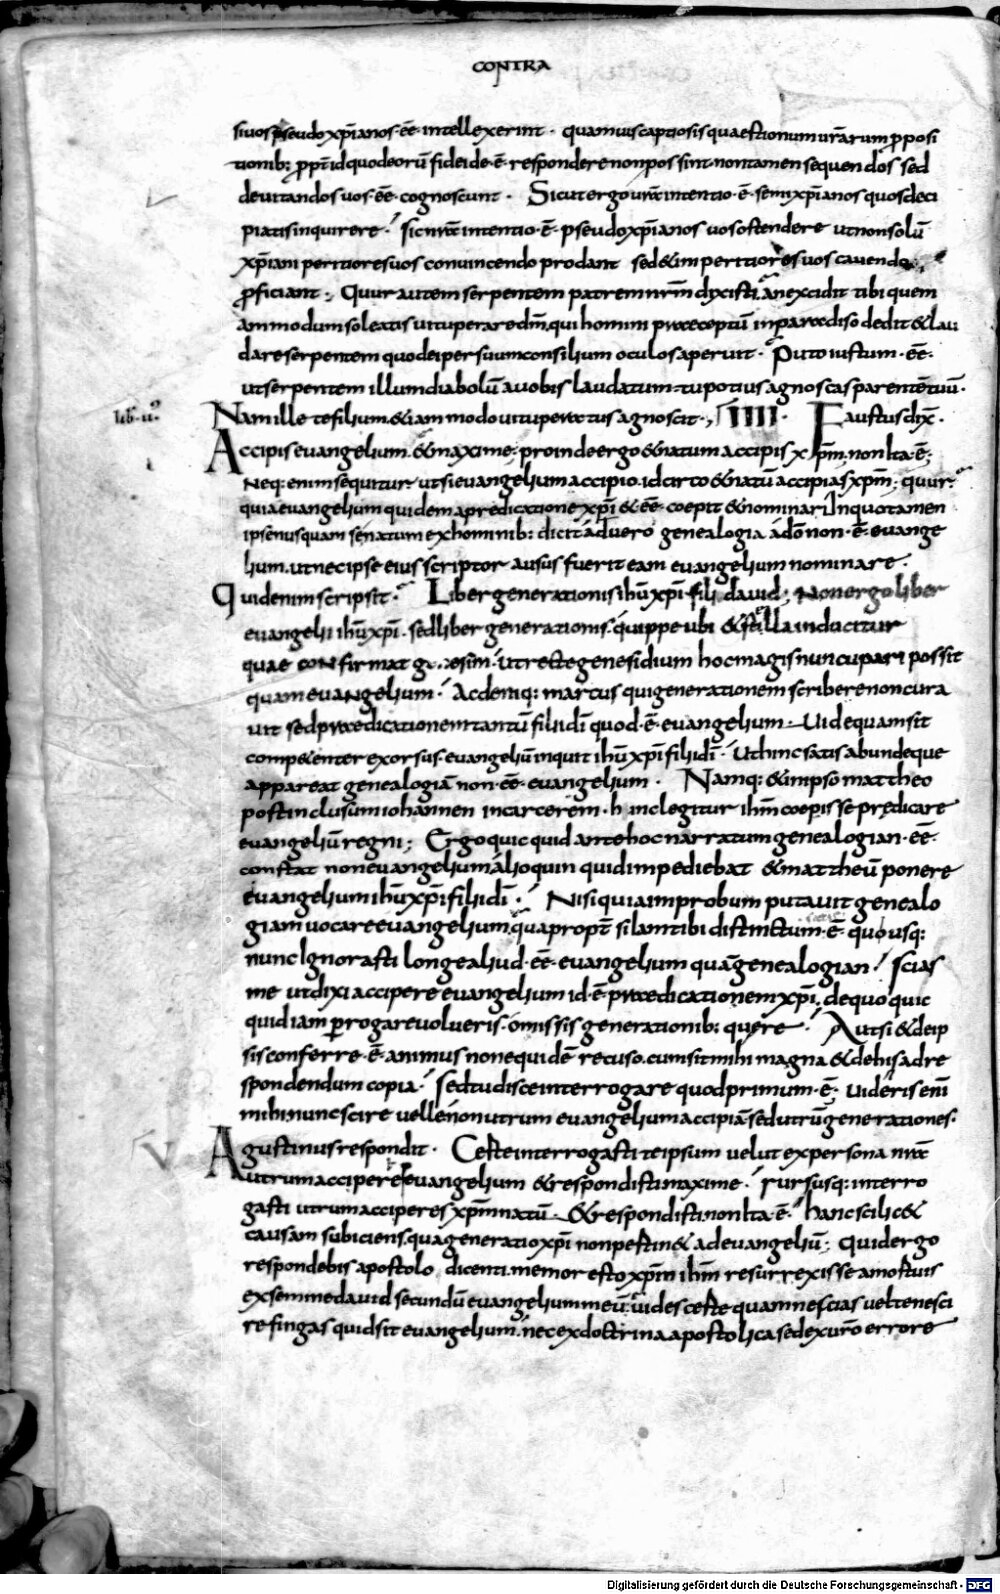 CONTRA
siuos pseudoxp̄ianos· eē· intellexerint · quamuis captiosis quaestionum ur̄arum p̱posi
tionib: p̱pt̄ id quod eorū fidei de·ē· respondere non possint· non tamen sequendos sed
deuitandos uos· eē· cognoscunt · Sicut ergo ur̄a intentio·ē· semixp̄ianos quos deci
piatis inquirere · sic nr̄a intentio·ē· pseudoxp̄ianos uos ostendere ut non solū
xp̄iani peritiores uos conuincendo prodant sed & inperitiores uos cauendo
p̱ficiant ; Quur autem serpentem patrem nr̄m dixisti. an excidit tibi quem
ammodum soleatis uituperare dm̄. qui homini praeceptū in paradiso dedit & lau
dare serpentem quod ei per suum consilium oculos aperuit · Puto iustum· eē·
ut serpentem illum diabolū a uobis laudatum· tu potius agnoscas parentē tuū·
lib· ii᷒ Nam ille te filium. & iam modo uituperatus agnoscit ·, IIII · Faustus dix̄ ·
Accipis euangelium. & maxime ; proinde ergo & natum accipis xp̄m. non ita·ē·
Neq: enim sequitur· ut si euangelium accipio. idcirco & natū accipias xp̄m ; quur
quia euangelium quidem a predicatione xp̄i & eē· coepit & nominari In quo tamen
ipse nusquam se natum ex hominib: dicit· ad uero genealogia ádō non·ē· euange
lium. ut nec ipse eius scriptor ausus fuerit eam euangelium nominare ·
Quid enim scripsit · Liber generationis ih̄u xp̄i fili dauid ; Non ergo liber
euangelii ih̄u xp̄i · sed liber generationis· quippe ubi & stella inducitur
quae confirmat g esim · ut recte genesidium hoc magis nuncupari possit
quam euangelium · Ac deniq: marcus qui generationem scribere non cura
uit sed praedicationem tantū filii dī quod·ē· euangelium Uide quam sit
comp&enter exorsus· euangeliū inquit ih̄u xp̄i filii dī · Ut hinc satis abundeque
appareat genealogiā non· eē· euangelium · Namq: & in ipso mattheo
post inclusum iohannen in carcerem· hinc legitur ih̄m coepisse predicare
euangeliū regni ; Ergo quicquid ante hoc narratum genealogian· eē·
constat non euangelium alioquin quid impediebat & mattheū ponere
euangelium ih̄u xp̄i filii dī · Nisi quia improbum putauit genealo
giam uocare euangelium. quapropt̄ si iam tibi distinctum·ē· quousq:
nunc Ignorasti longe aliud· eē· euangelium quā genealogian · scias
me ut dixi accipere euangelium id·ē· praedicationem xp̄i. de quo quic
quid iam p̱rogare uolueris· omissis generationib: quere · Aut si & de ip
sis conferre·ē· animus non equidē recuso. cum sit mihi magna & de his ad re
spondendum copia · sed tu disce interrogare quod primum·ē· Uideris enī
mihi nunc scire uelle non utrum euangelium accipiā sed utrū generationes·
V Agustinus respondit · Certe interrogasti te ipsum uelut ex persona nr̄a
utrum accipere euangelium & respondisti maxime · rursusq: interro
gasti utrum acciperes xp̄m natū & respondisti non Ita·ē· hanc scilic&
causam subiciens. quia generatio xp̄i non pertin& ad euangeliū ; Quid ergo
respondebis apostolo dicenti. memor esto xp̄m ih̄m resurrexisse a mortuis
ex semine dauid secundū euangelium meū. uides certe quam nescias uel te nesci
re fingas quid sit euangelium. nec ex doctrina apostolica sed ex ur̄o errore
Digitalisierung gefördert durch die Deutsche Forschungsgemeinschaft - DFG